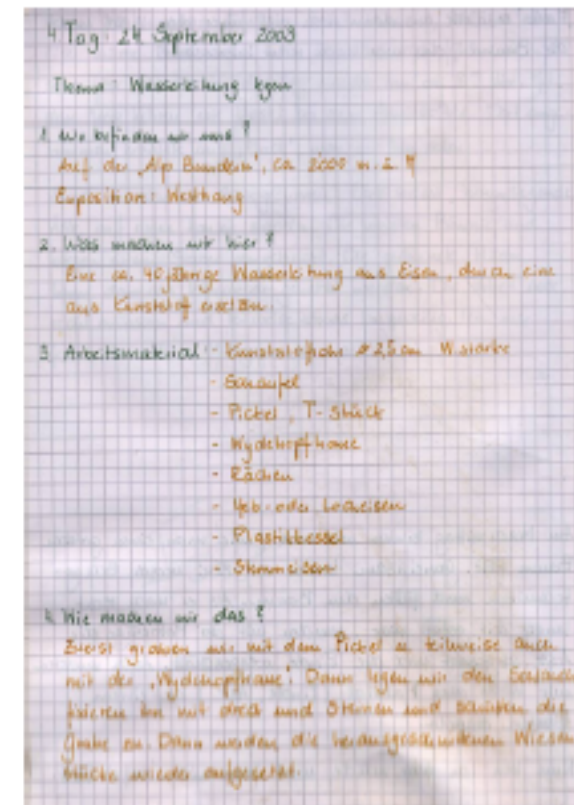 4 Tag: 24 September 2003
Thema: Wasserleitung legen
1. Wo befinden wir uns?
Auf der „Alp Bundern", ca. 2000 m. ü. M
Exposition: Westhang
2. Was machen wir hier?
Eine ca. 40 jährige Wasserleitung aus Eisen, durch eine
aus Kunststoff ersetzen.
3. Arbeitsmaterial: - Kunststoffrohr ø 2,5 cm W.stärke
- Schaufel
- Pickel, T-Stück
- Wydehopfhaue
- Rächen
- oder Locheisen
- Plastikkessel
- Stemmeisen
4. Wie machen wir das?
Zuerst graben wir mit dem Pickel u. teilweise auch
mit der „Wydehopfhaue". Dann legen wir den
fixieren ihn mit dreck und Steinen und schütten die
Grube zu. Dann werden die herausgeschnittenen Wiesen
stücke wieder aufgesetzt.